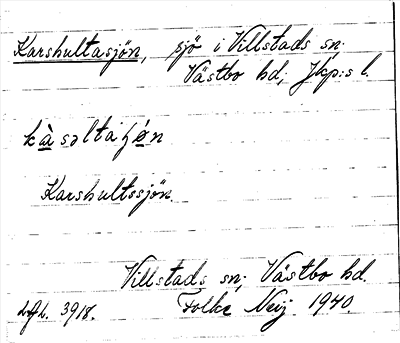 Karshultasjön, sjö i Villstads sn.
Västbo hd, Jkp:s l.
Karshultssjön.
Villstads sn, Västbo hd.
3918. Folke Neij 1940.